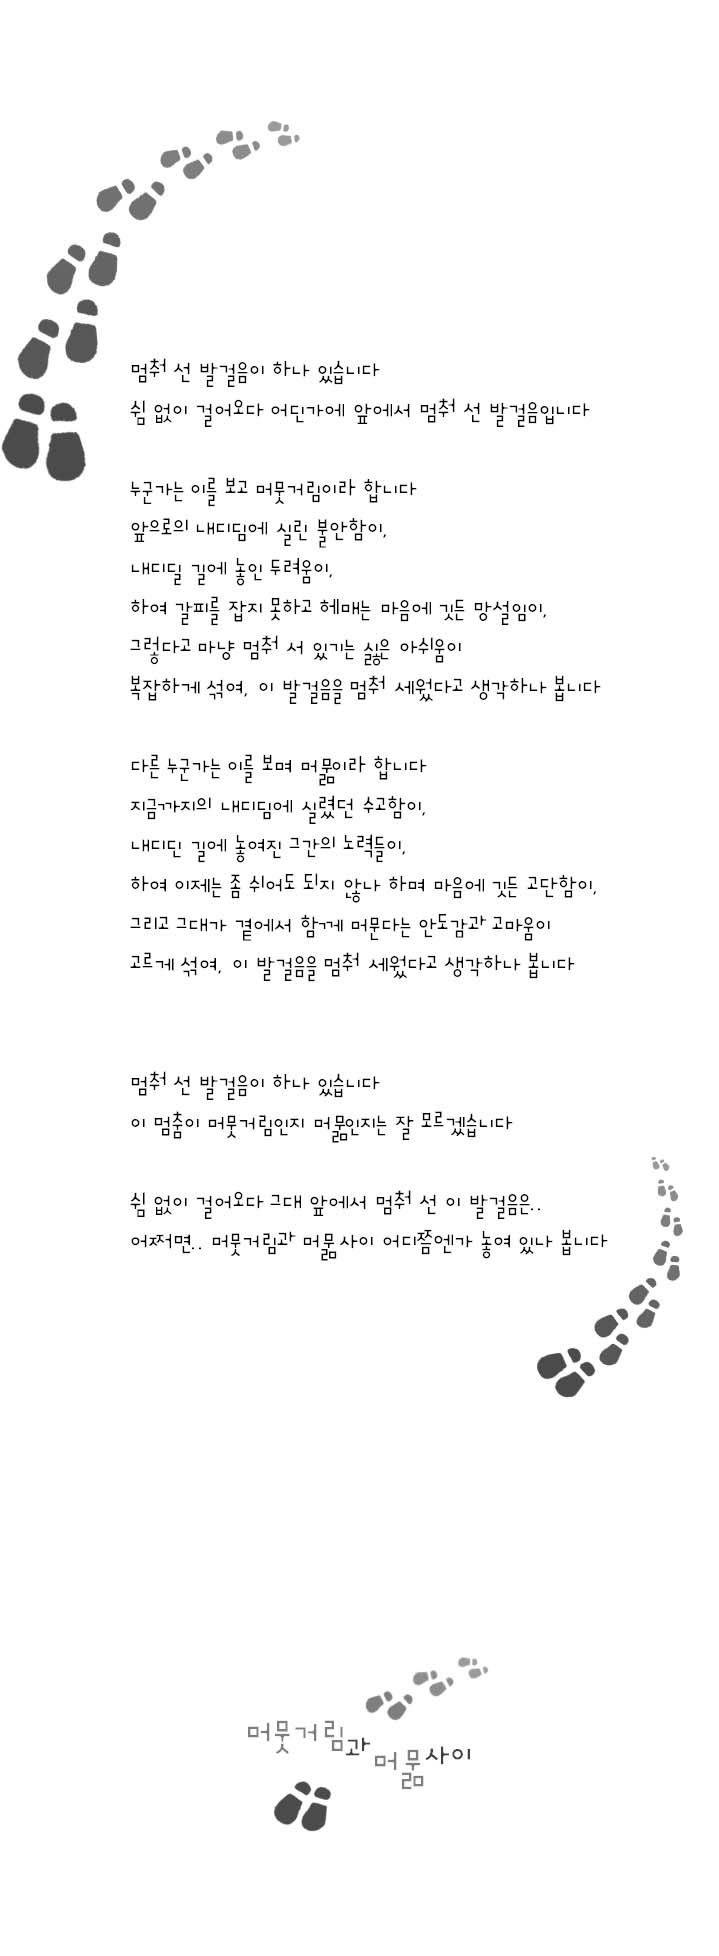 멈춰 선 발걸음이 하나 있습니다
쉼 없이 걸어오다 어딘가에 앞에서 멈춰 선 발걸음입니다
누군가는 이를 보고 머뭇거림이라 합니다
앞으로의 내디딤에 실린 불안함이,
내디딜 길에 놓인 두려움이,
하여 갈피를 잡지 못하고 헤매는 마음에 깃든 망설임이,
그렇다고 마냥 멈춰 서 있기는 싫은 아쉬움이
복잡하게 섞여, 이 발걸음을 멈춰 세웠다고 생각하나 봅니다
다른 누군가는 이를 보며 머묾이라 합니다
지금까지의 내디딤에 실렸던 수고함이,
내디딘 길에 놓여진 그간의 노력들이,
하여 이제는 좀 쉬어도 되지 않나 하며 마음에 깃든 고단함이,
그리고 그대가 곁에서 함께 머문다는 안도감과 고마움이
고르게 섞여, 이 발걸음을 멈춰 세웠다고 생각하나 봅니다
멈춰 선 발걸음이 하나 있습니다
이 멈춤이 머뭇거림인지 머묾인지는 잘 모르겠습니다
쉼 없이 걸어오다 그대 앞에서 멈춰 선 이 발걸음은..
어쩌면.. 머뭇거림과 머묾 사이 어디쯤엔가 놓여 있나 봅니다
머뭇거림과 머묾 사이